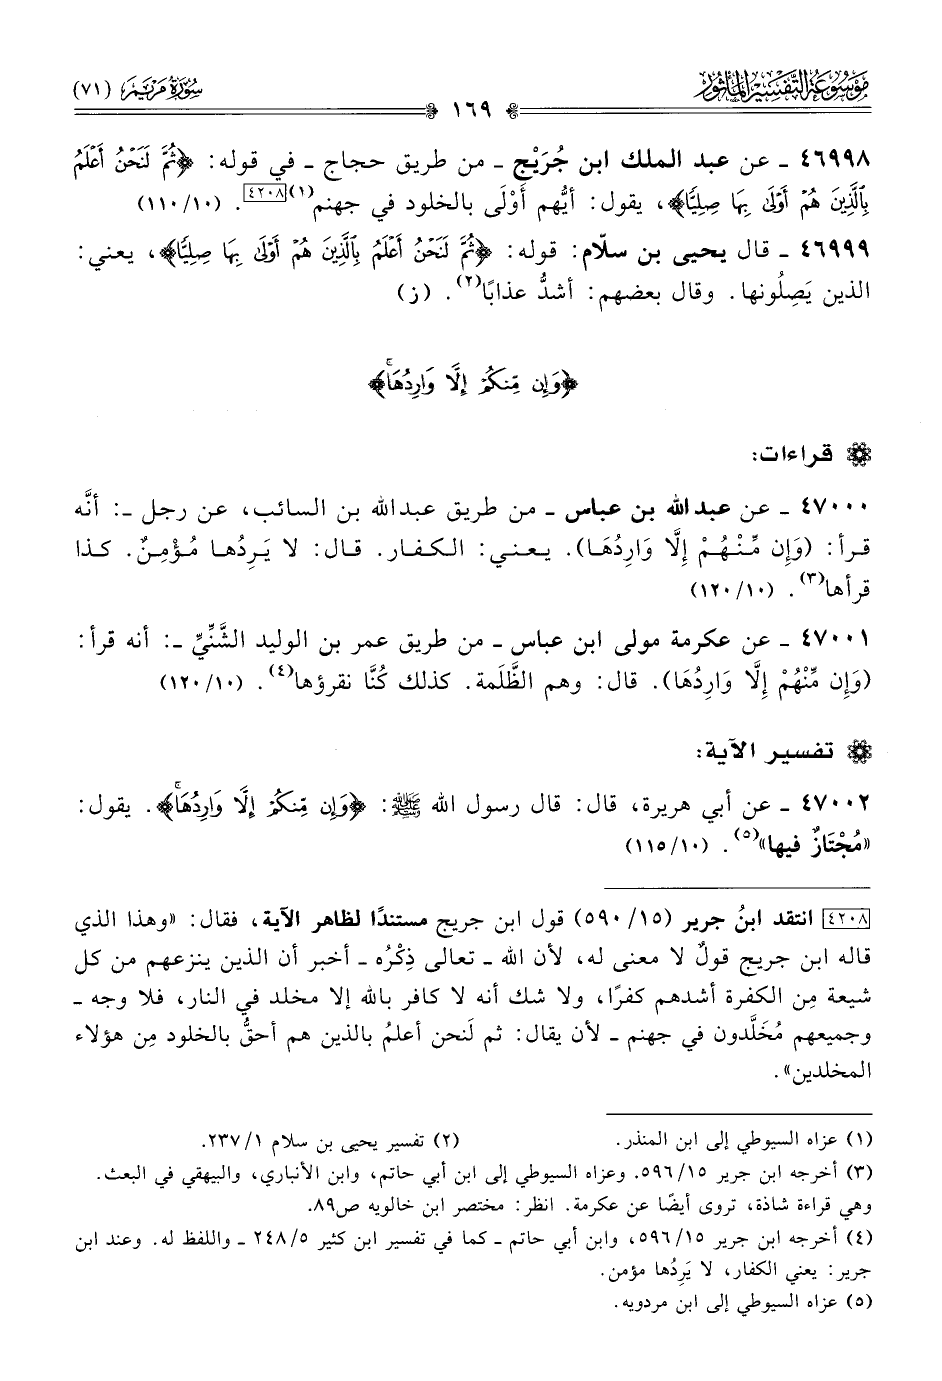 مَوْسُوعَةُ التَّفْسِيرِ المَأْثُورِ
سُورَةُ مَرْيَمَ (٧١)
١٦٩
٤٦٩٩٨ ـ عن عبد الملك ابن جُرَيْج ـ من طريق حجاج ـ في قوله: ﴿ثُمَّ لَنَحْنُ أَعْلَمُ
بِٱلَّذِينَ هُمْ أَوْلَىٰ بِهَا صِلِيًّا﴾، يقول: أيُّهم أَوْلَى بالخلود في جهنم(١)[٤٢٠٨]. (١٠/ ١١٠)
٤٦٩٩٩ ـ قال يحيى بن سلّام: قوله: ﴿ثُمَّ لَنَحْنُ أَعْلَمُ بِٱلَّذِينَ هُمْ أَوْلَىٰ بِهَا صِلِيًّا﴾، يعني:
الذين يَصِلُونها. وقال بعضهم: أشدُّ عذابًا(٢). (ز)
﴿وَإِن مِّنكُمْ إِلَّا وَارِدُهَاۚ﴾
قراءات:
٤٧٠٠٠ ـ عن عبد الله بن عباس ـ من طريق عبد الله بن السائب، عن رجل ـ: أنَّه
قرأ: (وَإِن مِّنْهُمْ إِلَّا وَارِدُهَا). يعني: الكفار. قال: لا يَرِدُها مُؤْمِنٌ. كذا
قرأها(٣). (١٠/ ١٢٠)
٤٧٠٠١ ـ عن عكرمة مولى ابن عباس ـ من طريق عمر بن الوليد الشَّنِّيِّ ـ: أنه قرأ:
(وَإِن مِّنْهُمْ إِلَّا وَارِدُهَا). قال: وهم الظَّلَمة. كذلك كُنَّا نقرؤها(٤). (١٠/ ١٢٠)
تفسير الآية:
٤٧٠٠٢ ـ عن أبي هريرة، قال: قال رسول الله ﷺ: ﴿وَإِن مِّنكُمْ إِلَّا وَارِدُهَاۚ﴾. يقول:
«مُجْتَازٌ فيها»(٥). (١٠/ ١١٥)
[٤٢٠٨] انتقد ابنُ جرير (١٥/ ٥٩٠) قول ابن جريج مستندًا لظاهر الآية، فقال: «وهذا الذي
قاله ابن جريج قولٌ لا معنى له، لأن الله ـ تعالى ذِكْرُه ـ أخبر أن الذين ينزعهم من كل
شيعة مِن الكفرة أشدهم كفرًا، ولا شك أنه لا كافر بالله إلا مخلد في النار، فلا وجه ـ
وجميعهم مُخَلَّدون في جهنم ـ لأن يقال: ثم لَنحن أعلمُ بالذين هم أحقُّ بالخلود مِن هؤلاء
المخلدين».
(١) عزاه السيوطي إلى ابن المنذر. (٢) تفسير يحيى بن سلام ١/ ٢٣٧.
(٣) أخرجه ابن جرير ١٥/ ٥٩٦. وعزاه السيوطي إلى ابن أبي حاتم، وابن الأنباري، والبيهقي في البعث.
وهي قراءة شاذة، تروى أيضًا عن عكرمة. انظر: مختصر ابن خالويه ص٨٩.
(٤) أخرجه ابن جرير ١٥/ ٥٩٦، وابن أبي حاتم ـ كما في تفسير ابن كثير ٥/ ٢٤٨ ـ واللفظ له. وعند ابن
جرير: يعني الكفار، لا يَرِدُها مؤمن.
(٥) عزاه السيوطي إلى ابن مردويه.